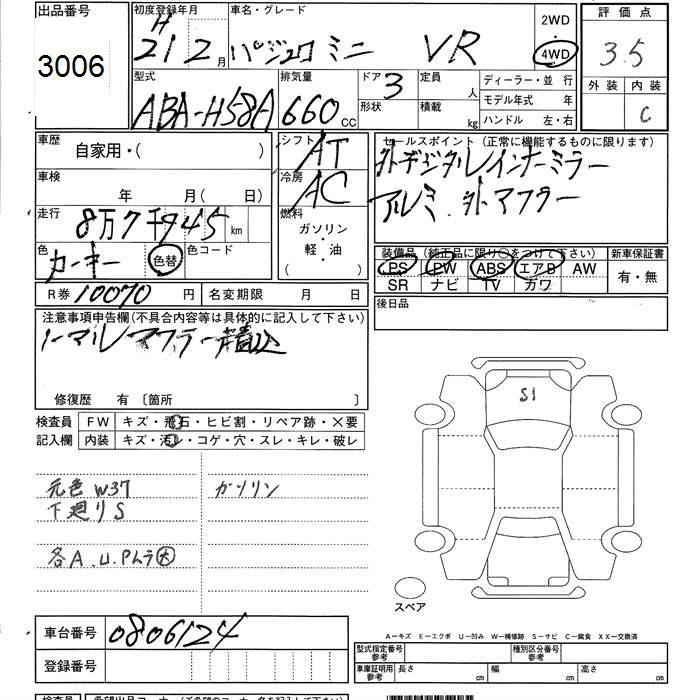 出品番号 初度登録年月 車名・グレード 2WD 評価点
3006 H 21 2月 パジェロ ミニ VR 4WD 3.5
型式 排気量 ドア 3 定員 人 ディーラー・並 行 外装 内装
ABA-H58A 660 CC 形状 積載 kg モデル年式 年 C
ハンドル 左・右
車歴 自家用・( ) シフト AT セールスポイント (正常に機能するものに限ります)
車検 年 月( 日) 冷房 AC 外デジタルインナーミラー
アルミ. 外マフラー
走行 8万7千945 km 燃料 ガソリン
軽・油
( )
色 カーキー 色替 色コード 装備品 (純正品に限り○をつけて下さい) 新車保証書
PS PW ABS エアB AW 有・無
SR ナビ TV カワ
R券 10070 円 名変期限 月 日 後日品
注意事項申告欄(不具合内容等は具体的に記入して下さい)
ノーマルマフラー積込
修復歴 有 〔箇所 〕
検査員 FW キズ・飛石・ヒビ割・リペア跡・×要
記入欄 内装 キズ・汚レ・コゲ・穴・スレ・キレ・破レ
S1
元色 W37 ガソリン
下廻りS
各A.U.Pムラ大
スペア
車台番号 0806124
登録番号
A-キズ E-エクボ U-凹み W-補修跡 S-サビ C-腐食 XX-交換済
型式指定番号 参考 種別区分番号 参考
車庫証明用 参考 長さ cm 幅 cm 高さ cm